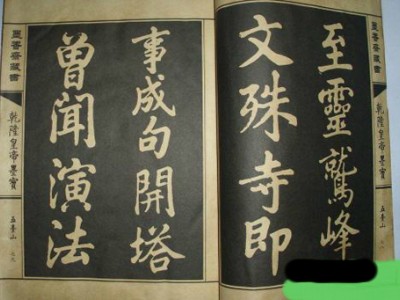 乾隆皇帝墨寶
五臺山
至靈鷲峰
文殊寺即
事成句開塔
曾聞演法
乾隆皇帝墨寶
五臺山